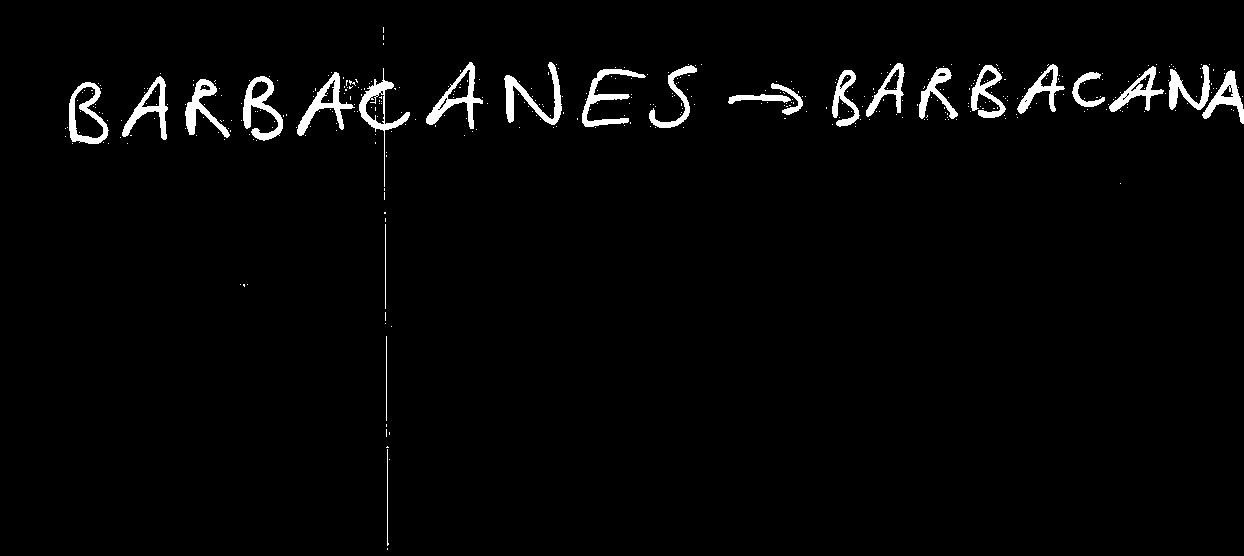 BARBACANES → BARBACANA